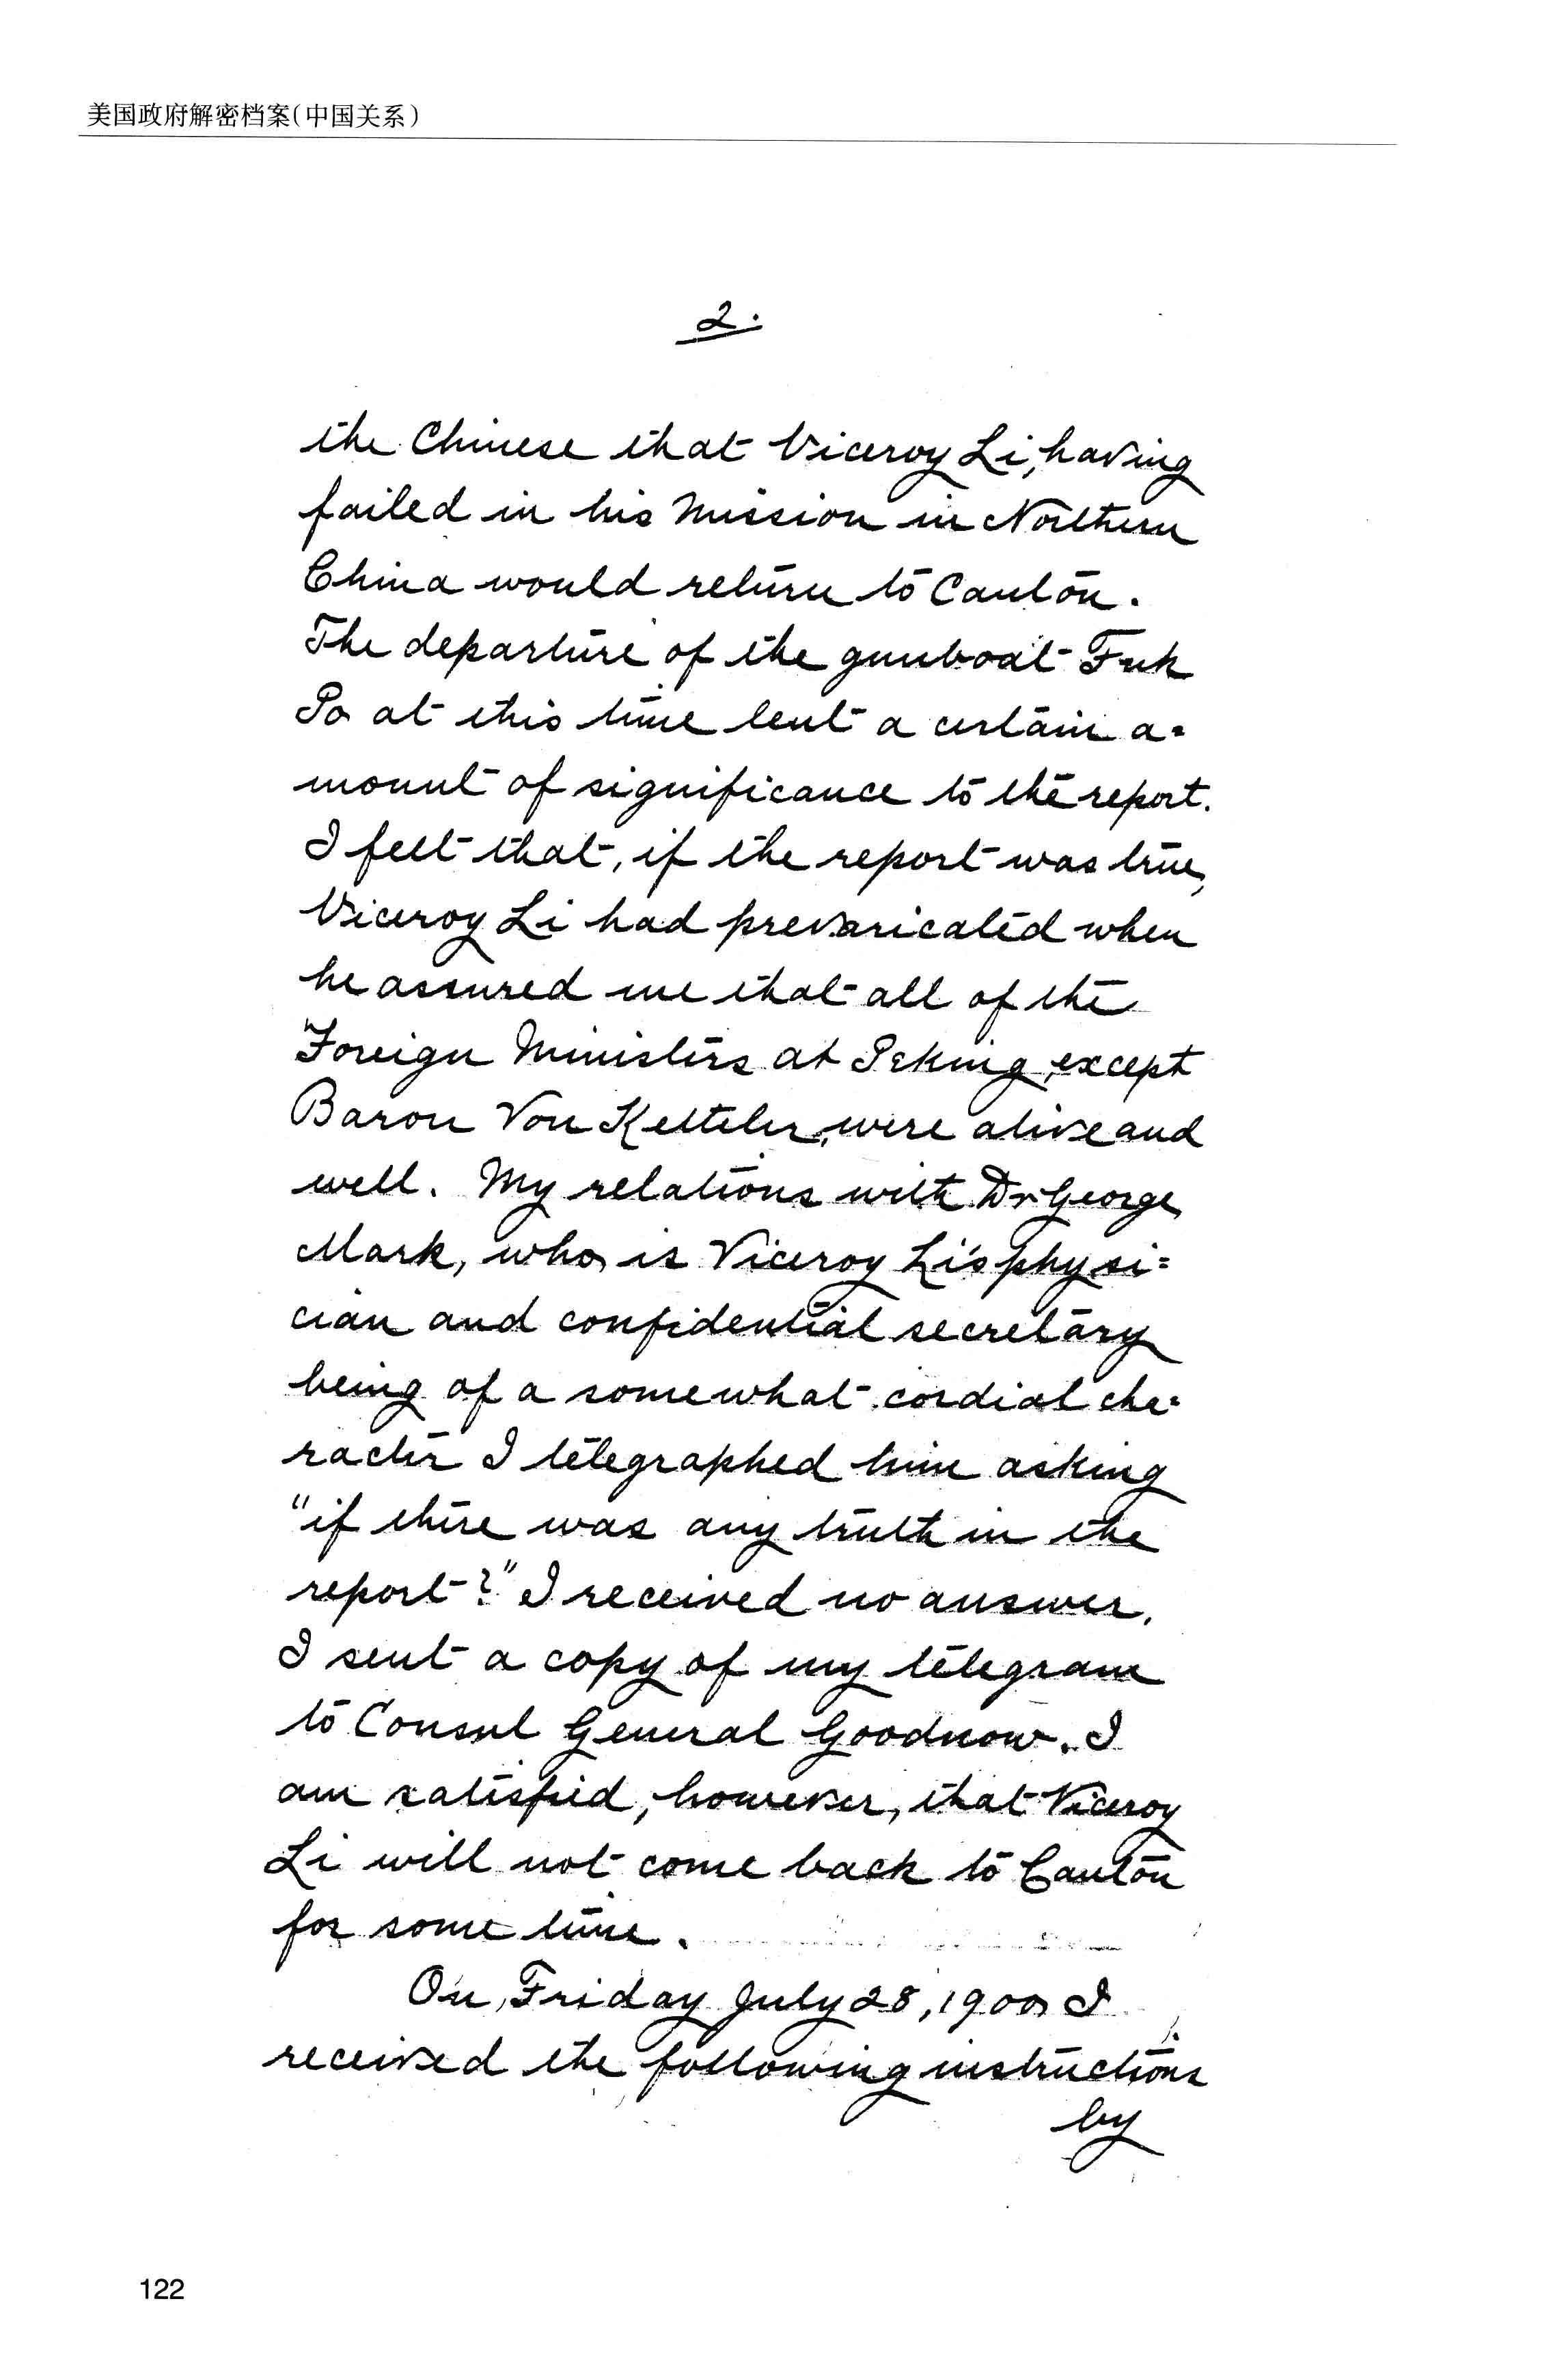 美国政府解密档案(中国关系)
2.
the Chinese that Viceroy Li, having
failed in his mission in Northern
China would return to Canton.
The departure of the gunboat Fuk
Po at this time lent a certain a=
mount of significance to the report.
I felt that, if the report was true,
Viceroy Li had prevaricated when
he assured me that all of the
Foreign Ministers at Peking, except
Baron Von Ketteler, were alive and
well. My relations with Dr George
Mark, who is Viceroy Li's physi=
cian and confidential secretary
being of a somewhat cordial cha=
racter I telegraphed him asking
"if there was any truth in the
report?" I received no answer.
I sent a copy of my telegram
to Consul General Goodnow. I
am satisfied, however, that Viceroy
Li will not come back to Canton
for some time.
On, Friday July 28, 1900 I
received the following instructions
by
122